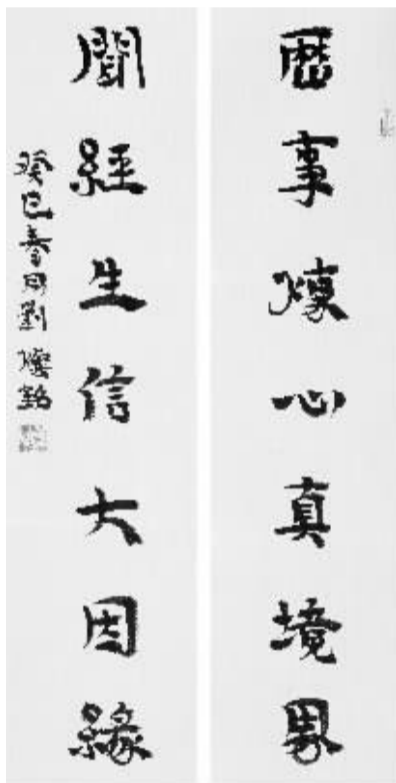 歷事煉心真境界
聞經生信大因緣
癸巳春月劉燦銘